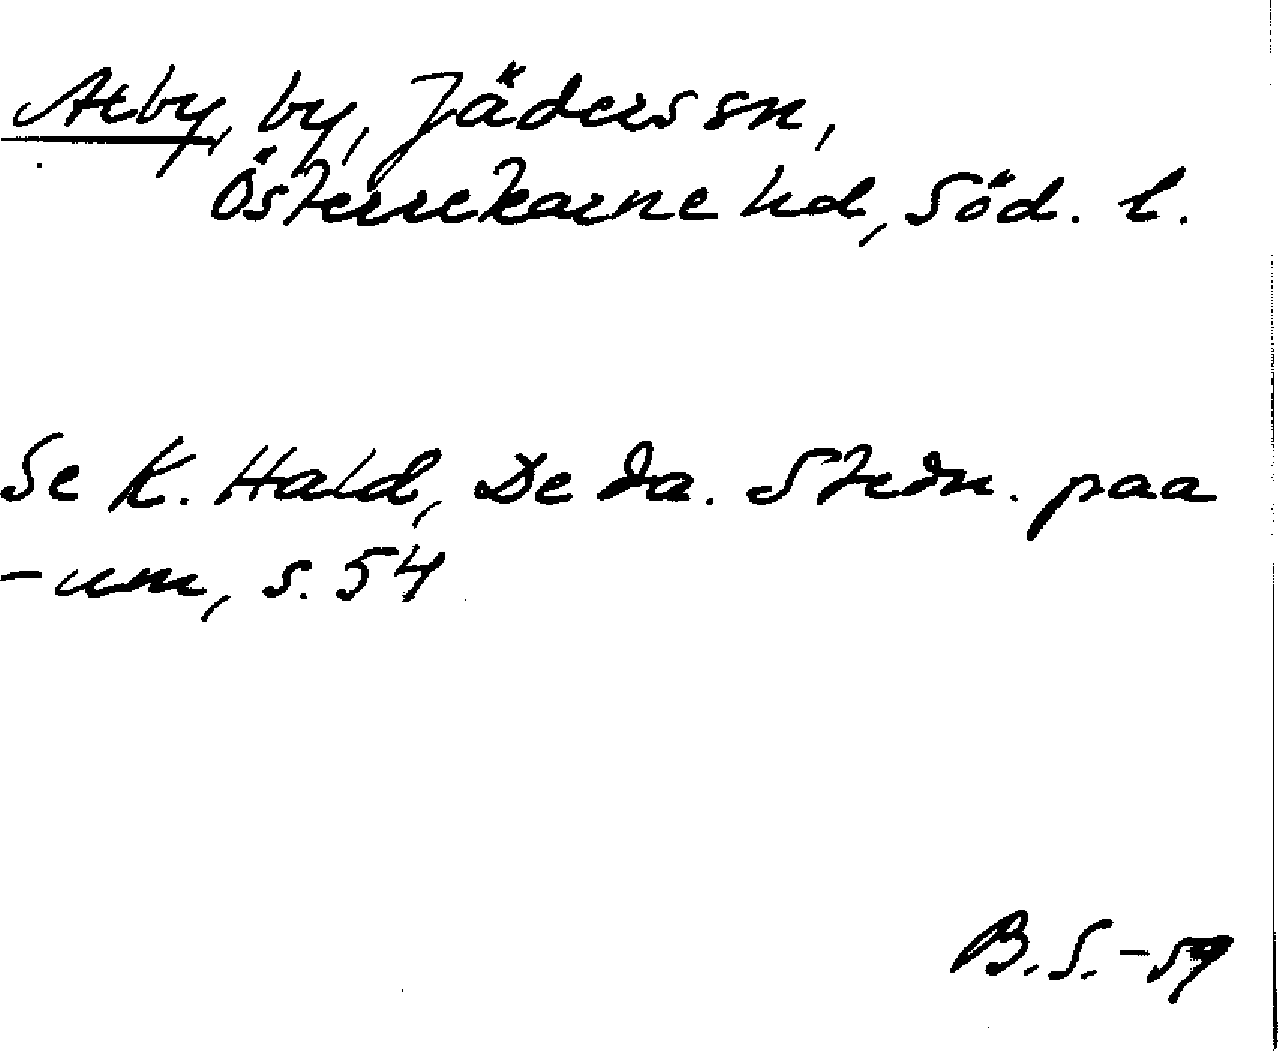 Åtby, by, Jäders sn,
Österrekarne hd, Söd. l.
Se K. Hald, De da. Stedn. paa
-um, s. 54
B.S.-59